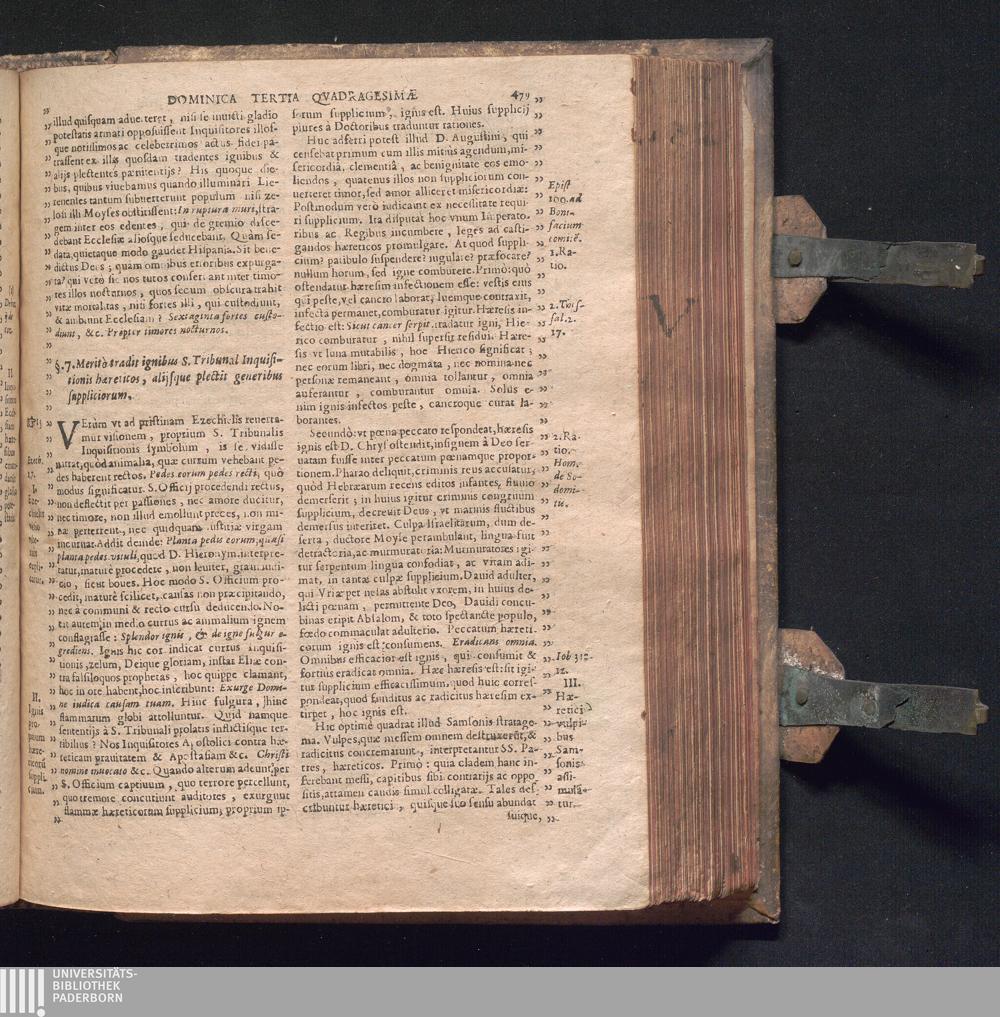 DOMINICA TERTIA QVADRAGESIMÆ 479
illud quisquam aduerteret, nisi se inuicti gladio
potestatis armati opposuissent Inquisitores illos-
que notissimos ac celeberrimos actus fidei pa-
trassent ex illis quosdam tradentes ignibus &
alijs plectentes pænitentijs? His quoque die-
bus, quibus viuebamus quando illuminári
tantum subuerterunt populum nisi ze-
losi illi Moyses obstitissent: In ruptura muri, stra-
gem inter eos edentes, qui de gremio disce-
debant Ecclesiæ aliosque seducebant. Quàm se-
data, quietaque modo gaudet Hispania. Sit bene-
dictus Deus; quàm omnibus erroribus expurga-
ta? qui verò sic nos tutos conseruant inter timo-
res illos nocturnos, quos secum obscura trahit
vitæ mortalitas, nisi fortes illi, qui custodiunt,
& ambiunt Ecclesiam? Sexaginta fortes custo-
diunt, &c. Propter timores nocturnos.
§. 7. Meritò tradit ignibus S. Tribunal Inquisi-
tionis hæreticos, alijsque plectit generibus
suppliciorum.
VErùm vt ad pristinam Ezechielis reuerta-
mur visionem, proprium S. Tribunalis
Inquisitionis symbolum, is se vidisse
narrat, quòd animalia, quæ currum vehebant pe-
des haberent rectos. Pedes eorum pedes recti, quò
modus significatur S. Officij procedendi rectus,
non deflectit per passiones, nec amore ducitur,
nec timore, non illud emollunt preces, non mi-
næ perterrent, nec quidquam iustitiæ virgam
incuruat. Addit deinde: Planta pedis eorum, quasi
planta pedis vituli, quod D. Hieronym. interpre-
tatur, maturè procedere, non leuiter, grauiter
sicut boues. Hoc modo S. Officium pro-
cedit, maturè scilicet, causas non præcipitando,
nec à communi & recto cursu deducendo. No-
tit autem, in medio currus ac animalium ignem
conflagrasse: Splendor ignis, & de igne fulgur e-
grediens. Ignis hic cor indicat currus Inquisi-
tionis, zelum, Deique gloriam, instar Eliæ con-
tra falsiloquos prophetas, hoc quippe clamant,
hoc in ore habent, hoc inscribunt: Exurge Domi-
ne iudica causam tuam. Hinc fulgura, hinc
flammarum globi attolluntur. Quid namque
sententijs à S. Tribunali prolatis inflictisque ter-
ribilius? Nos Inquisitores Apostolici contra hæ-
reticam prauitatem & Apostasiam &c. Christi
nomine inuocato &c. Quando alterum adeunt, per
S. Officium captiuum, quo terrore percellunt,
quo tremore concutiunt auditores, exurgunt
flammæ hæreticorum supplicium, proprium ip-
sorum supplicium, ignis est. Huius supplicij
plures à Doctoribus traduntur rationes.
Huc adferri potest illud D. Augustini, qui
censebat primum cum illis mitiùs agendum, mi-
sericordiâ, clementiâ, ac benignitate eos emo-
liendos, quatenus illos non suppliciorum con-
uerteret timor, sed amor alliceret misericordiæ:
Postmodum verò iudicauit ex necessitate requi-
ri supplicium. Ita disputat hoc vnum Imperato-
ribus ac Regibus incumbere, leges ad casti-
gandos hæreticos promulgare. At quod suppli-
cium? patibulo suspendere? iugulare? præfocare?
nullum horum, sed igne comburere. Primò: quò
ostendatur hæresim infectionem esse: vestis eius
qui peste, vel cancro laborat, luemque contraxit,
infecta permanet, comburatur igitur. Hæresis in-
fectio est: Sicut cancer serpit. tradatur igni, Hie-
rico comburatur, nihil supersit residui. Hære-
sis vt luna mutabilis, hoc Hierico significat;
nec eorum libri, nec dogmata, nec nomina nec
personæ remaneant, omnia tollantur, omnia
auferantur, comburantur omnia. Solus e-
nim ignis infectos peste, cancroque curat la-
borantes.
Secundò: vt pœna peccato respondeat, hæresis
ignis est D. Chrys ostendit, insignem à Deo ser-
uatam fuisse inter peccatum pœnamque propor-
tionem. Pharao deliquit, criminis reus accusatur,
quòd Hebræarum recens editos infantes, fluuio
demerserit; in huius igitur criminis congruum
supplicium, decreuit Deus, vt marinis fluctibus
demersus interiret. Culpa Israelitarum, dum de-
serta, ductore Moyse perambulant, lingua fuit
detractoria, ac murmuratoria: Murmuratores igi-
tur serpentum lingua confodiat, ac vitam adi-
mat, in tantæ culpæ supplicium. Dauid adulter,
qui Vriæ per nefas abstulit vxorem, in huius de-
licti pœnam, permittente Deo, Dauidi concu-
binas eripit Absalom, & toto spectante populo,
fœdo commaculat adulterio. Peccatum hæreti-
corum ignis est consumens. Eradicans omnia.
Omnibus efficacior est ignis, qui consumit &
fortius eradicat omnia. Hæc hæresis est: sit igi-
tur supplicium efficacissimum, quod huic corres-
pondeat, quod funditus ac radicitus hæresim ex-
tirpet, hoc ignis est.
Hic optimè quadrat illud Samsonis stratage-
ma. Vulpes, quæ messem omnem destruxerūt, &
radicitus concremarunt, interpretantur SS. Pa-
tres, hæreticos. Primo: quia cladem hanc in-
ferebant messi, capitibus sibi contrarijs ac oppo
sitis, attamen caudis simul colligatæ. Tales des-
cribuntur hæretici, quisque suo sensu abundat
suique,
Epist
100. ad
Boni-
facium
comitē.
1. Ra-
tio.
2. Thes-
sal. 2.
17.
2. Ra-
tio.
Hom.
de So-
domi-
tis.
Iob 31.
12.
III.
Hæ-
retici
vulpi-
bus
Sam-
sonis
assi-
mulā-
tur.
II.
Ignis
pro-
prium
hære-
ticorū
suppli-
cium.
V
UNIVERSITÄTS-
BIBLIOTHEK
PADERBORN